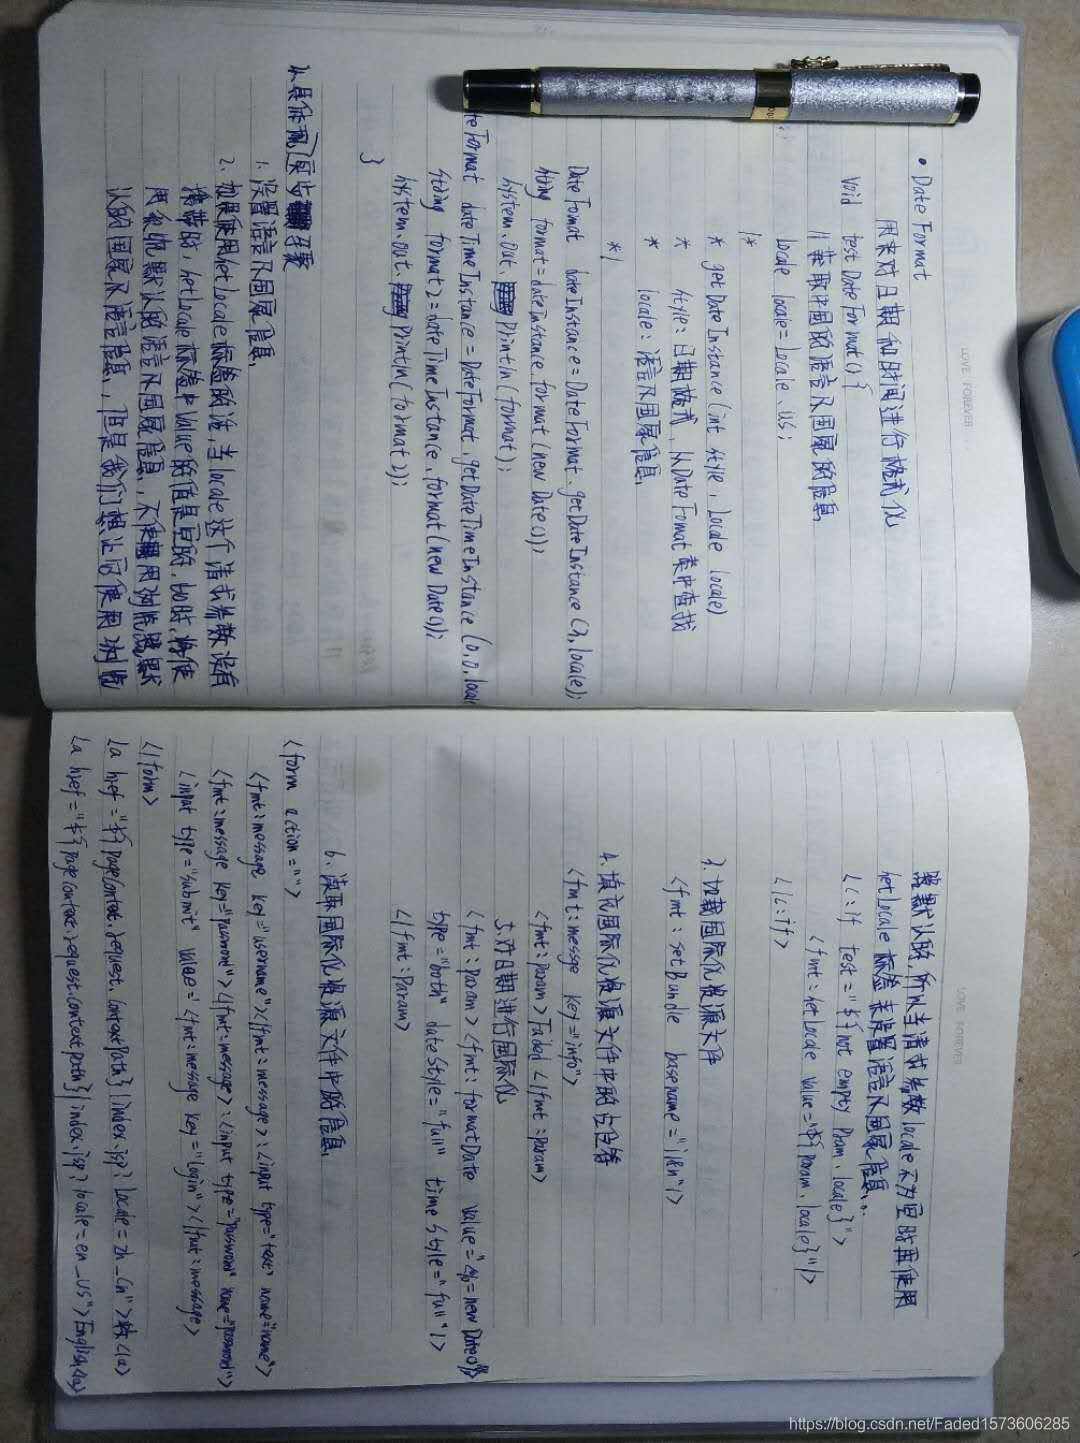 • DateFormat
用来对日期和时间进行格式化
void testDateFormat(){
//获取中国的语言及国家的信息
Locale locale=Locale.US;
/*
* getDateInstance(int style, Locale locale)
* style:日期格式,从DateFomat类中查找
* locale:语言及国家信息
*/
Date Fomat dateInstance=DateFormat.getDateInstance(3,locale);
String format=dateInstance.format(new Date());
System.out.println(format);
teFormat dateTimeInstance=DateFormat.getDateTimeInstance(0,0,local
String format2=dateTimeInstance.format(new Date());
System.out.println(format2);
}
2.具体配置步骤
1.设置语言及国家信息
2.如果使用setLocale标签的话,当locale这个请求参数没有
携带时,setLocale标签中value的值是空的,此时,将使
用系统默认的语言及国家信息,不使用浏览器默
认的国家及语言信息,但是我们想让它使用浏览
器默认的,所以当请求参数locale不为空时再使用
setLocale标签来设置语言及国家信息
<c:if test="${not empty Pram.locale}">
<fmt:setLocale value="${param.locale}"/>
</c:if>
3.加载国际化资源文件
<fmt:setBundle basename="i18n"/>
4.填充国际化资源文件中的占位符
<fmt:messge key="info">
<fmt:param>Faded</fmt:param>
5.对日期进行国际化
<fmt:param><fmt:formatDate value="<%=new Date()%>
type="both" dateStyle="full" timeStyle="full"/>
</fmt:Param>
6.读取国际化资源文件中的信息
<form action="">
<fmt:message key="username"></fmt:message>:<input type="text" name="name">
<fmt:message key="password"></fmt:message>:<input type="password" name="password">
<input type="submit" value='<fmt:message key="login"></fmt:message>
</form>
<a href="${pageContext.request.contextPath}/index.jsp?locale=zh_Cn"></a>
<a href="${pageContext.request.contextpath}/index.jsp?locale=en_US">English</a>
LOVE FOREVER...
LOVE FOREVER
https://blog.csdn.net/Faded1573606285